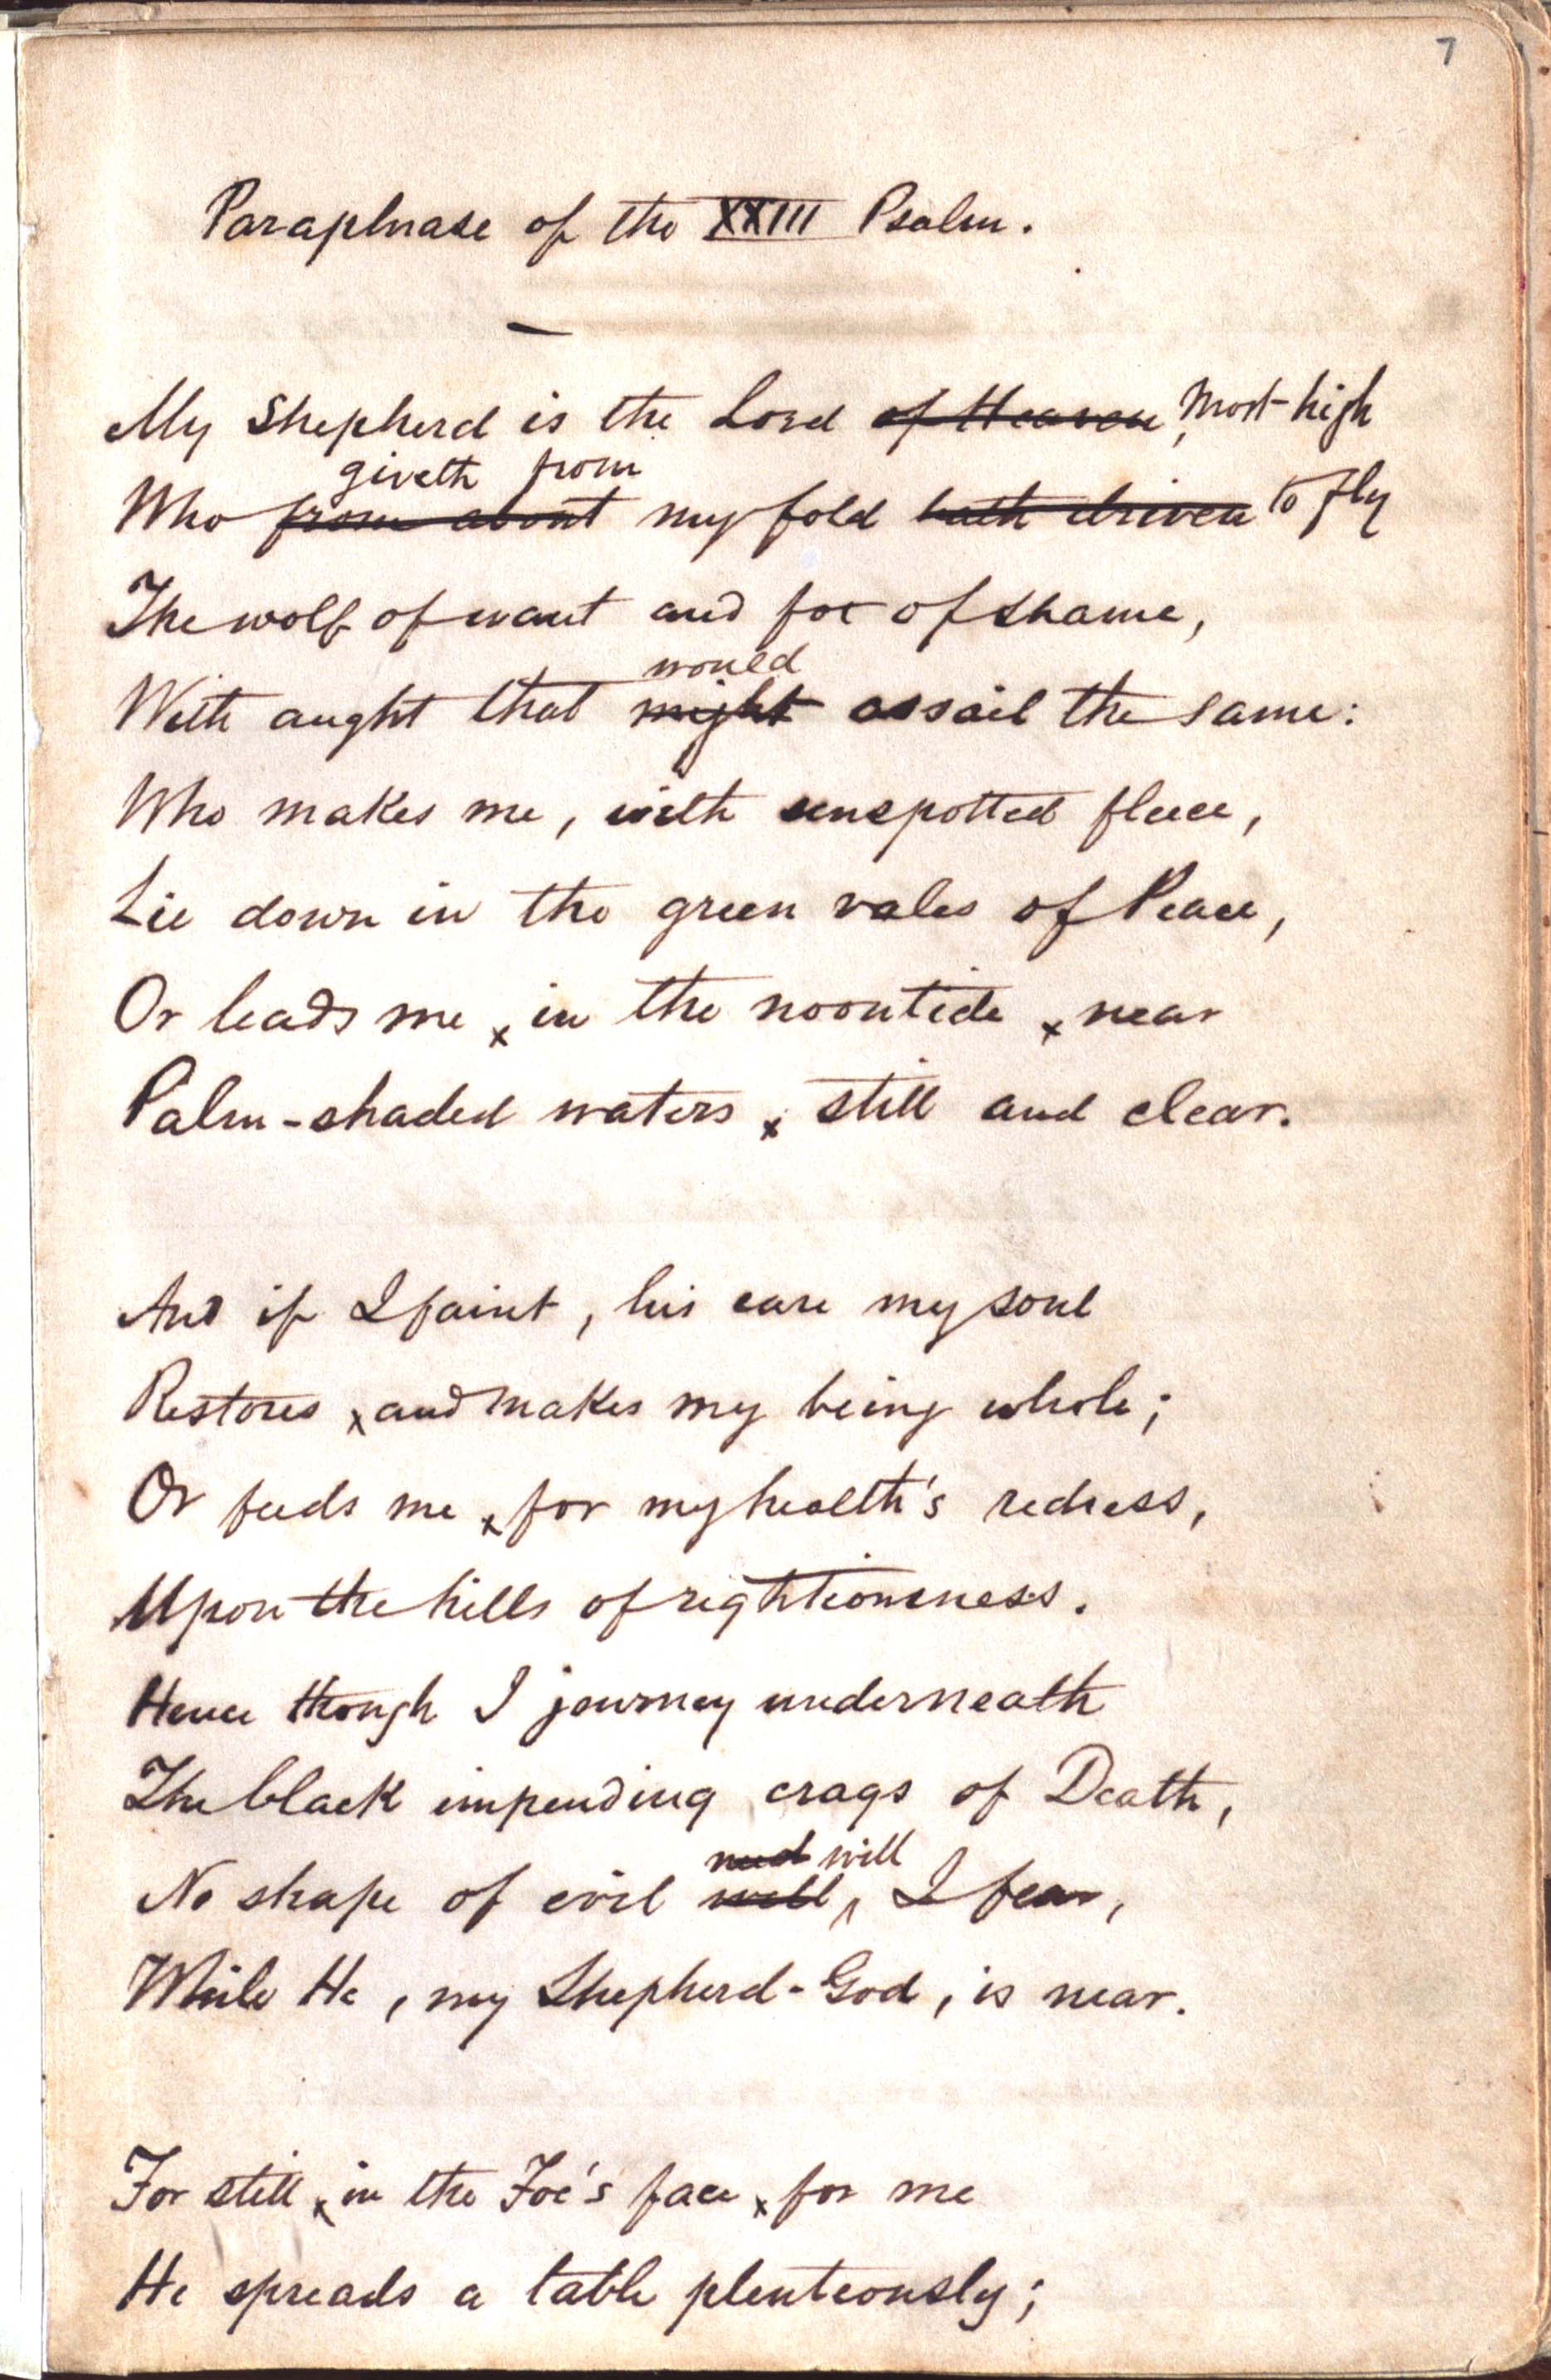 7
Paraphrase of the XXIII Psalm.
My Shepherd is the Lord of Heaven, Most-high
giveth from
Who from about my fold hath driven to fly
The wolf of want and foe of shame,
would
With aught that might assail the same:
Who makes me, with unspotted fleece,
Lie down in the green vales of Peace,
Or leads me, in the noontide, near
Palm-shaded waters, still and clear.
And if I faint, his care my soul
Restores, and makes my being whole;
Or feeds me, for my health's redress,
Upon the hills of rightiousness.
Hence though I journey underneath
The black impending crags of Death,
need will
No shape of evil will, I fear,
While He, my Shepherd-God, is near.
For still, in the Foe's face, for me
He spreads a table plenteously;